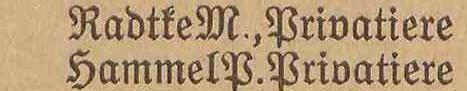 Radtke M., Privatiere
Hammel P. Privatiere